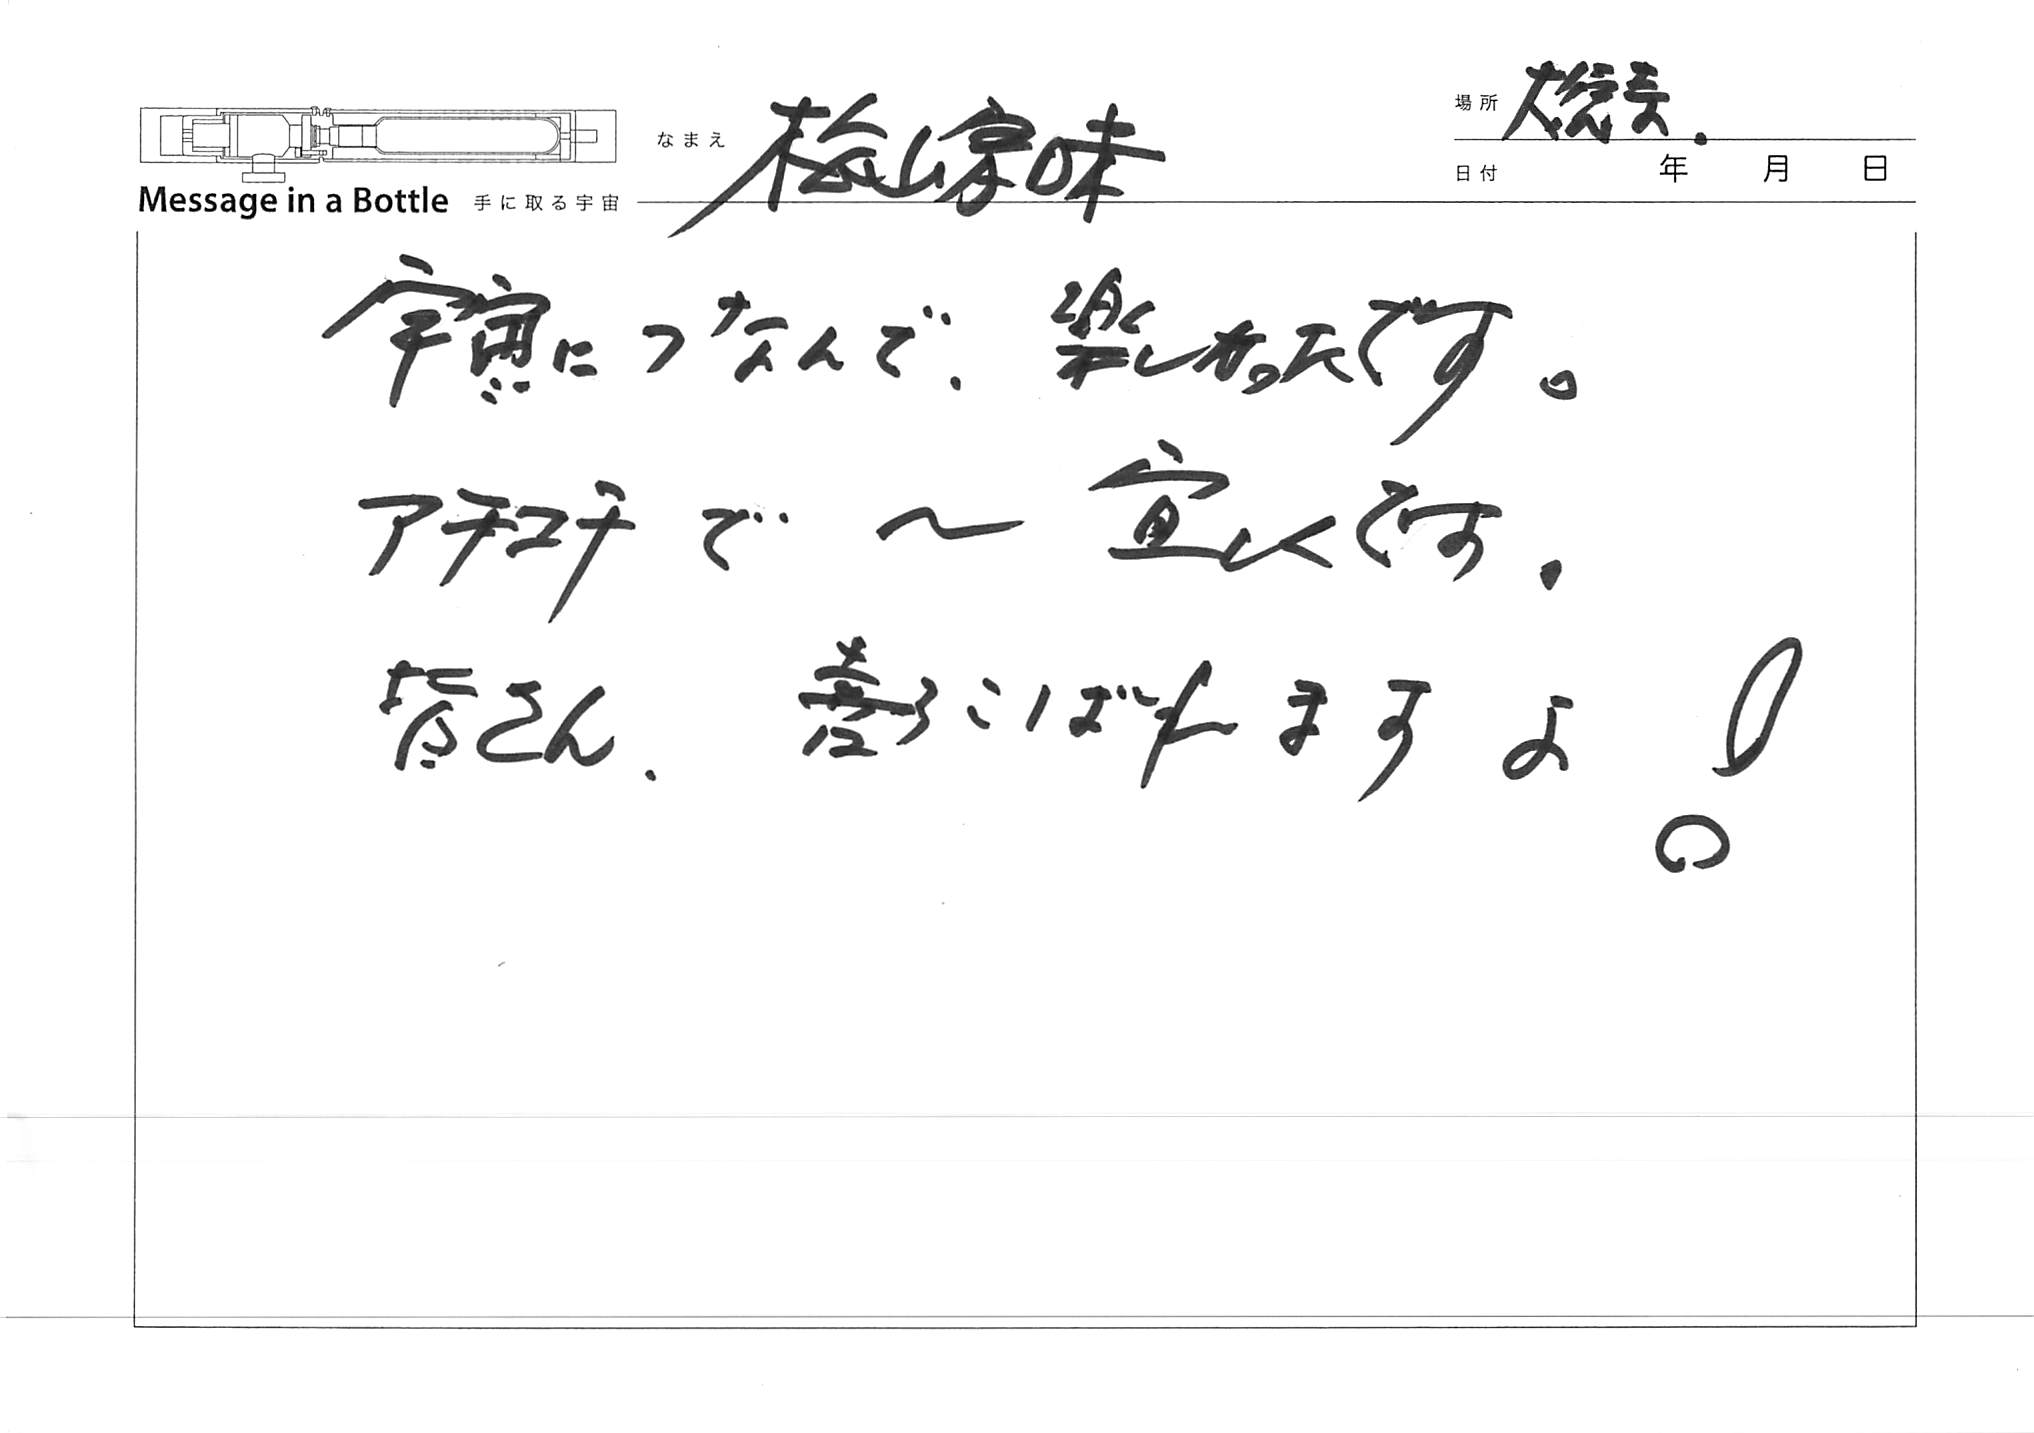 場所
なまえ
日付 年 月 日
Message in a Bottle 手に取る宇宙
宇宙につなんで、楽しかったです。
アチコチで〜宜しくです.
皆さん、喜ろこばれますよ!